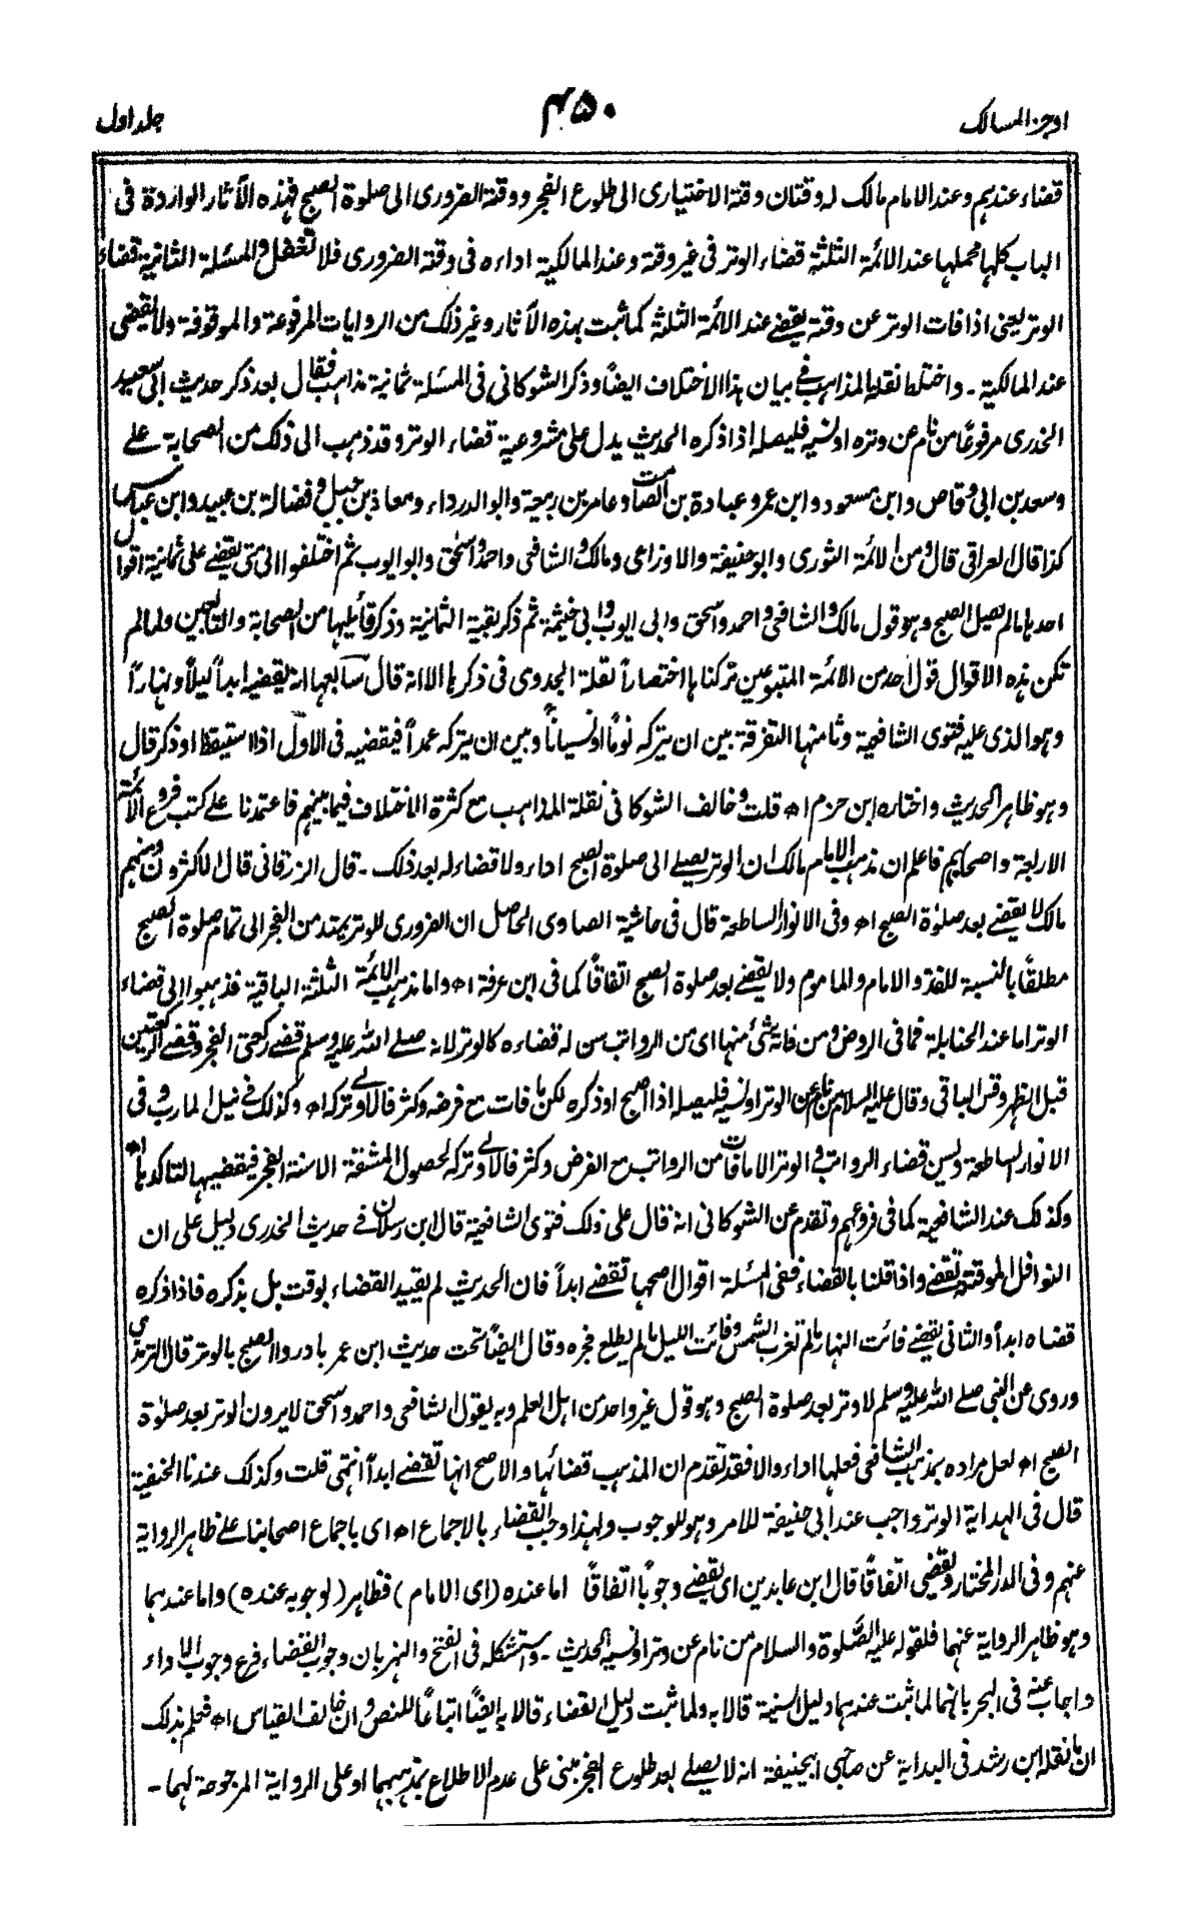 اوجز المسالك ٤٥٠ جلد اول
قضاء عندهم وعند الامام مالك له وقتان وقتة الاختياري الى طلوع الفجر ووقتة الضروري الى صلوة الصبح فهذه الآثار الواردة في
الباب كلها محملها عند الائمة الثلثة قضاء الوتر في غير وقتة وعند المالكية اداءه في وقتة الضروري فلا تغفل والمسئلة الثانية قضاء
الوتر يعني اذا فات الوتر عن وقتة يقضى عند الائمة الثلثة كما ثبت بهذه الآثار وغير ذلك من الروايات المرفوعة والموقوفة ولا يقضى
عند المالكية ۔ واختلط نقلة المذاهب في بيان هذا الاختلاف ايضا وذكر الشوكاني في المسئلة ثمانية مذاهب فقال بعد ذكر حديث ابي سعيد
الخدري مرفوعًا من نام عن وتره او نسيه فليصله اذا ذكره الحديث يدل على مشروعية قضاء الوتر وقد ذهب الى ذلك من الصحابة علي
وسعد بن ابي وقاص وابن مسعود وابن عمر وعبادة بن الصامت وعامر بن ربيعة وابو الدرداء ومعاذ بن جبل وفضالة بن عبيد وابن عباس
كذا قال العراقي قال ومن الائمة الثوري وابو حنيفة والاوزاعي ومالك والشافعي واحمد واسحق وابو ايوب ثم اختلفوا الى متى يقضى على ثمانية اقوال
احدها ما لم يصل الصبح وهو قول مالك والشافعي واحمد واسحق وابي ايوب وابي خيثمة ثم ذكر بقية الثمانية وذكر قائليها من الصحابة والتابعين ولما لم
تكن هذه الاقوال قول احد من الائمة المتبوعين تركناها اختصاراً لقلة الجدوى في ذكرها الا انه قال سابعها انه يقضيه ابداً ليلاً ونهاراً
وهو الذي عليه فتوى الشافعية وثامنها التفرقة بين ان يتركه نومًا او نسيانًا وبين ان يتركه عمداً فيقضيه في الاول اذا استيقظ او ذكر قال
وهو ظاهر الحديث واختاره ابن حزم اھ قلت وخالف الشوكاني نقلة المذاهب مع كثرة الاختلاف فيما بينهم فاعتمدنا على كتب فروع الائمة
الاربعة واصحابهم فاعلم ان مذهب الامام مالك ان الوتر يصلى الى صلوة الصبح اداء ولا قضاء له بعد ذلك ۔ قال الزرقاني قال الاكثرون ومنهم
مالك لا يقضى بعد صلوة الصبح اھ وفي الانوار الساطعة قال في حاشية الصاوي الحاصل ان الضروري للوتر يمتد من الفجر الى تمام صلوة الصبح
مطلقًا بالنسبة للفذ والامام والماموم ولا يقضى بعد صلوة الصبح اتفاقًا كما في ابن عرفة اھ واما مذهب الائمة الثلثة الباقية فذهبوا الى قضاء
الوتر اما عند الحنابلة فما في الروض ومن فاته شئ منها اي من الرواتب سن له قضاءه كالوتر لانه صلى الله عليه وسلم قضى ركعتي الفجر وقضى الركعتين
قبل الظهر وقس الباقي وقال عليه السلام من نام عن الوتر او نسيه فليصله اذا اصبح او ذكره لكن ما فات مع فرضه وكثر فالاولى تركه اھ وكذلك في نيل المارب وفي
الانوار الساطعة ويسن قضاء الرواتب والوتر الا ما فات من الرواتب مع الفرض وكثر فالاولى تركه لحصول المشقة الا سنة الفجر فيقضيها لتاكدها اھ
وكذلك عند الشافعية كما في فروعهم وتقدم عن الشوكاني انه قال على ذلك فتوى الشافعية قال ابن رسلان في حديث الخدري دليل على ان
النوافل الموقتة تقضى واذا قلنا بالقضاء ففي المسئلة اقوال اصحها تقضى ابداً فان الحديث لم يقيد القضاء بوقت بل بذكره فاذا ذكره
قضاه ابداً والثاني يقضى فائت النهار ما لم تغرب الشمس وفائت الليل ما لم يطلع فجره وقال ايضًا تحت حديث ابن عمر بادروا الصبح بالوتر قال الترمذي
وروى عن النبي صلى الله عليه وسلم لا وتر بعد صلوة الصبح وهو قول غير واحد من اهل العلم وبه يقول الشافعي واحمد واسحق لا يرون الوتر بعد صلوة
الصبح اھ لعل مراده بمذهب الشافعي فعلها اداء والا فقد تقدم ان المذهب قضائها والاصح انها تقضى ابداً انتهى قلت وكذلك عندنا الحنفية
قال في الهداية الوتر واجب عند ابي حنيفة للامر وهو للوجوب ولهذا وجب القضاء بالاجماع اھ اي باجماع اصحابنا على ظاهر الرواية
عنهم وفي الدر المختار ويقضى اتفاقًا قال ابن عابدين اي يقضى وجوبًا اتفاقًا اما عنده (اي الامام) فظاهر (لوجوبه عنده) واما عندهما
وهو ظاهر الرواية عنهما فلقوله عليه الصلوة والسلام من نام عن وتر او نسيه الحديث ۔ واستشكله في الفتح والنهر بان وجوب القضاء فرع وجوب الاداء
واجاب عنه في البحر بانهما لما ثبت عندهما دليل السنية قالا به ولما ثبت دليل القضاء قالا به ايضًا اتباعًا للنص وان خالف القياس اھ فعلم بذلك
ان ما نقله ابن رشد في البداية عن صاحبي ابي حنيفة انه لا يصلى بعد طلوع الفجر مبني على عدم الاطلاع بمذهبهما او على الرواية المرجوحة لهما ۔